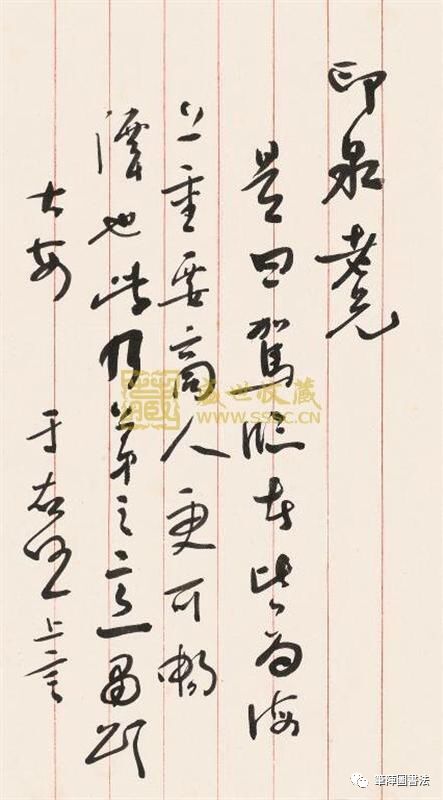 印泉老兄
是日駕臨 為海
上重要商人更可暢
談也此 弟之意
大安 于右任上言
盛世收藏
WWW.SSSC.CN
筆陣圖書法